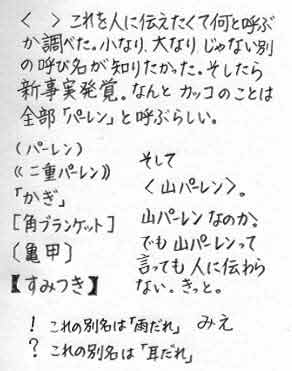 〈　〉これを人に伝えたくて何と呼ぶ
か調べた。小なり、大なり じゃない別
の呼び名が知りたかった。そしたら
新事実発覚。なんと カッコのことは
全部「パーレン」と呼ぶらしい。
(パーレン)
《二重パーレン》
「かぎ」
[角ブランケット]
〔亀甲〕
【すみつき】
そして
〈山パーレン〉。
山パーレン なのか。
でも 山パーレンって
言っても 人に伝わら
ない。きっと。
! これの別名は「雨だれ」 みえ
? これの別名は「耳だれ」